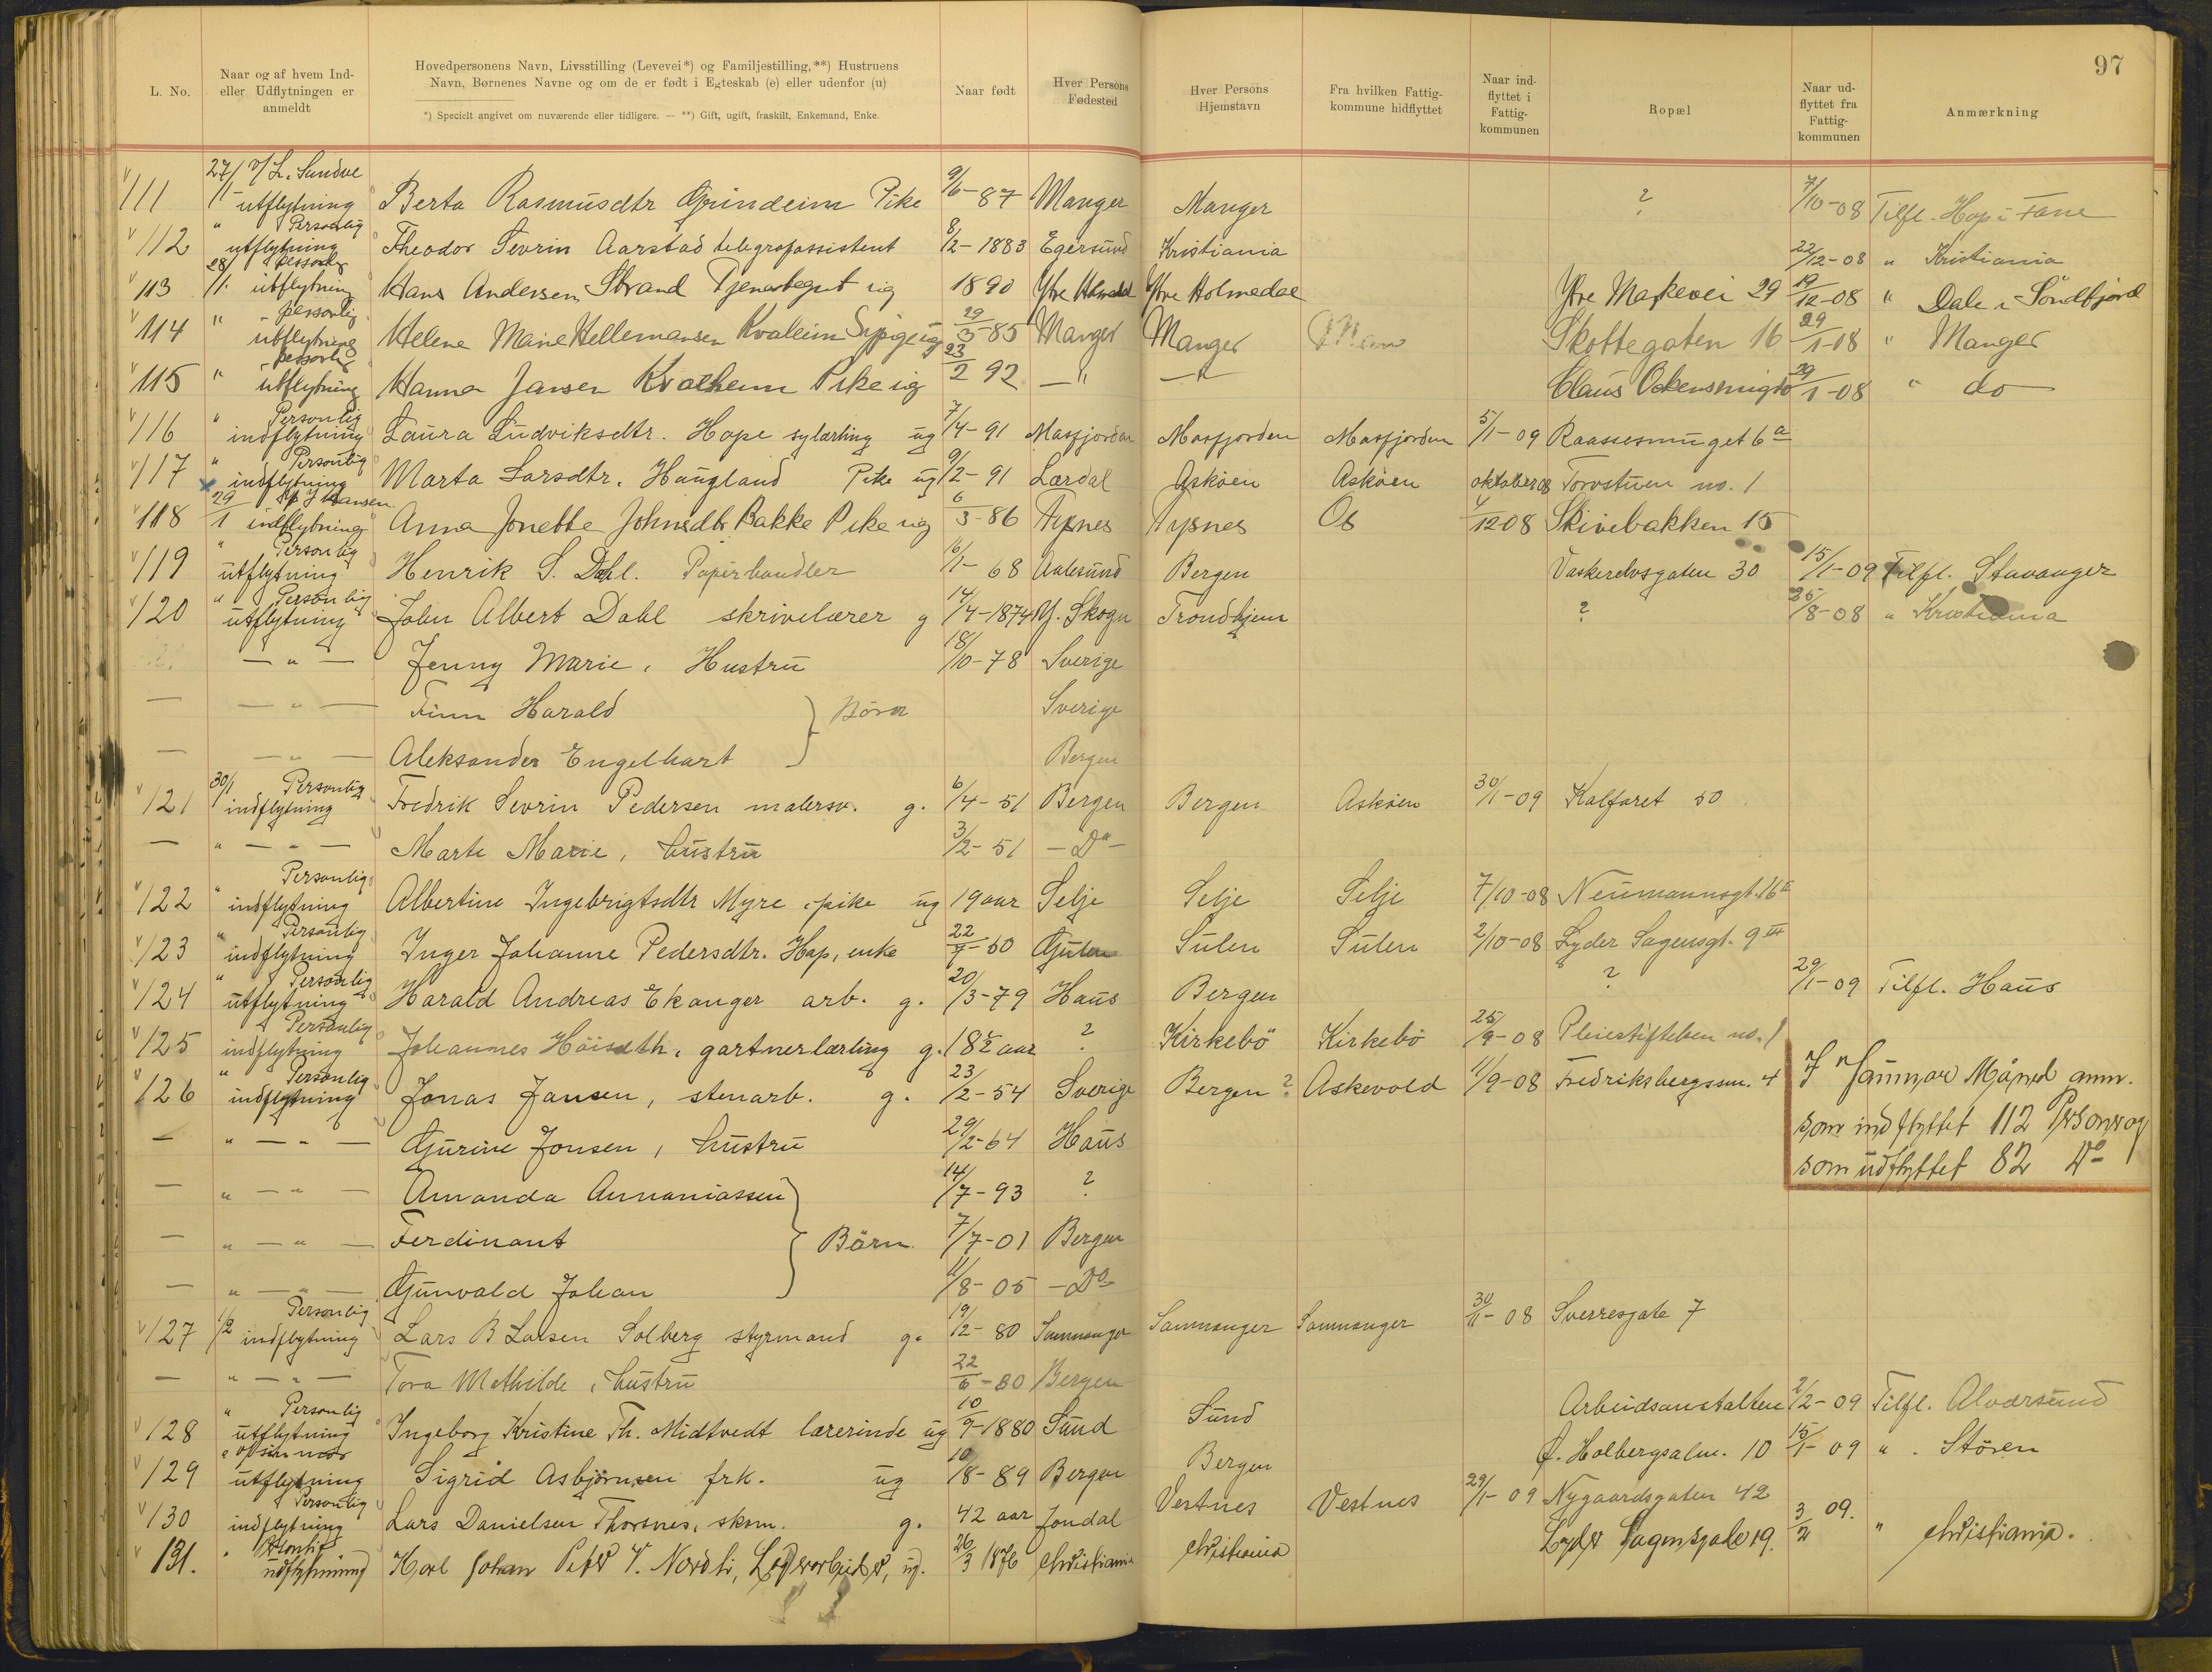 97
L. No.
Naar og af hvem Ind- eller Udflytningen er anmeldt
Hovedpersonens Navn, Livsstilling (Levevei*) og Familjestilling,**) Hustruens Navn, Børnenes Navne og om de er født i Egteskab (e) eller udenfor (u)
*) Specielt angivet om nuværende eller tidligere. — **) Gift, ugift, fraskilt, Enkemand, Enke.
Naar født
Hver Persons Fødested
Hver Persons Hjemstavn
Fra hvilken Fattigkommune hidflyttet
Naar indflyttet i Fattigkommunen
Bopæl
Naar udflyttet fra Fattigkommunen
Anmærkning
111 27/1 utflytning Berta Rasmusdtr Grindeim Pike 9/6-87 Manger Manger ? 7/10-08 Tilfl. Hop i Fane
112 " Personlig utflytning Theodor Sevrin Aarstad telegrafassistent 8/2-1883 Egersund Kristiania 22/12-08 " Kristiania
113 28/1 personlig utflytning Hans Andersen Strand Tjenestegut ug 1890 Ytre Holmedal Ytre Holmedal Ytre Markevei 29 19/12-08 " Dale i Söndfjord
114 " personlig utflytning Helene Marie Hellemansen Kvaleim Sypige ug 29/3-85 Manger Manger Skottegaten 16 29/1-08 " Manger
115 " personlig utflytning Hanna Jansen Kvalheim Pike ug 23/2 92 — " — " Claus Ockensmug 29/1-08 " do
116 " Personlig indflytning Laura Ludviksdtr. Hope sylærling ug 7/4-91 Masfjorden Masfjorden Masfjorden 5/1-09 Raassesmuget 6a
117 " Personlig indflytning Marta Larsdtr. Haugland Pike ug 9/2-91 Lærdal Askøen Askøen oktober 08 Torvstuen no. 1
118 29/1 Hansen indflytning Anna Jonette Johnsdtr Bakke Pike ug 6/3-86 Tysnes Tysnes Os 4/12 08 Skivebakken 15
119 " Personlig utflytning Henrik S. Dahl. Papirhandler 16/1-68 Aalesund Bergen Vaskerelvsgaten 30 15/1-09 Tilfl. Stavanger
120 " Personlig utflytning John Albert Dahl skrivelærer g 14/4-1874 Y. Skogn Trondhjem ? 25/8-08 " Kristiania
— " — Jenny Marie, Hustru 18/10-78 Sverige
— — " — Finn Harald } Börn Sverige
— — " — Aleksander Engelhart Bergen
121 30/1 Personlig indflytning Fredrik Sevrin Pedersen malersv. g. 6/4-51 Bergen Bergen Askøen 30/1-09 Kalfaret 50
— " — " — Marte Marie, hustru 3/2-51 — Do —
122 " Personlig indflytning Albertine Ingebrigtsdtr Myre, pike ug 19 aar Selje Selje Selje 7/10-08 Neumannsgt. 16
123 " Personlig indflytning Inger Johanne Pedersdtr. Hop, enke 22/9-50 Gulen Sulen Sulen 2/10-08 Lyder Sagensgt. 9 III
124 " Personlig utflytning Harald Andreas Ekanger arb. g. 20/3-79 Haus Bergen ? 29/1-09 Tilfl. Haus
125 " Personlig indflytning Johannes gartnerlærling g. 18 1/2 aar ? Kirkebö Kirkebö 25/9-08 Pleiestiftelsen no. 1
126 " Personlig indflytning Jonas Jansen, stenarb. g. 23/2-54 Sverige Bergen ? Askevold 11/9-08 Fredriksbergssm. 4
I Januar Måned anm.
som indflyttet 112 Personer og
som udflyttet 82 Do
— " — " — Gurine Jonsen, hustru 29/2-64 Haus
— " — " — Amanda Annaniassen 14/7-93 ?
— " — " — Ferdinant } Börn 7/7-01 Bergen
— " — " — Gunvald Johan 11/8-05 — Do
127 1/2 Personlig indflytning Lars B Larsen Solberg styrmand g. 19/12-80 Samnanger Samnanger Samnanger 30/11-08 Sverresgate 7
— " — " — Tora Mathilde, hustru 22/6-80 Bergen
128 " Personlig utflytning Ingeborg Kristine Th. Midtvedt lærerinde ug 10/9-1880 Sund Sund Arbeidsanstalten 2/2-09 Tilfl. Alversund
129 utflytning Sigrid Asbjörnsen frk. ug 10/8-89 Bergen Bergen Holbergsalm. 10 15/1-09 " Stören
130 Personlig indflytning Lars Danielsen Thorsnes, skom. g. 42 aar Jondal Vestnes Vestnes 29/1-09 Nygaardsgaten 42
131. " udflytning Karl Johan Peter V. Nordli, ug. 26/3 1876 Christiania Christiania Lyder Sagensgate 19. 3/2 09. " Christiania.